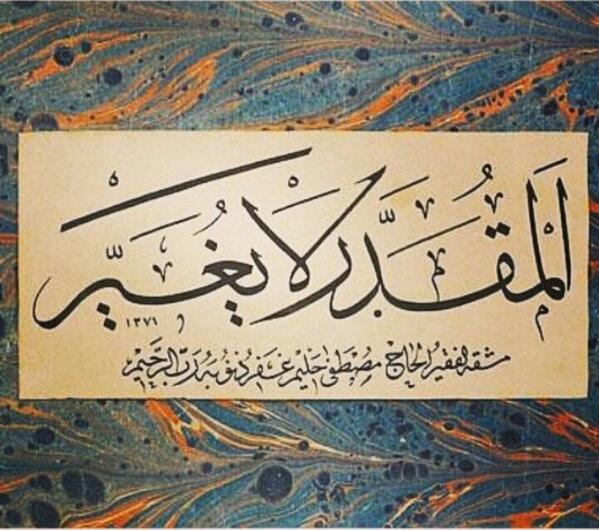 اَلْمُقَدَّرُ لَا يُغَيَّرُ
١٣٧١
مشقه الفقير الحاج مصطفى حليم غفر ذنوبه رب الرحيم